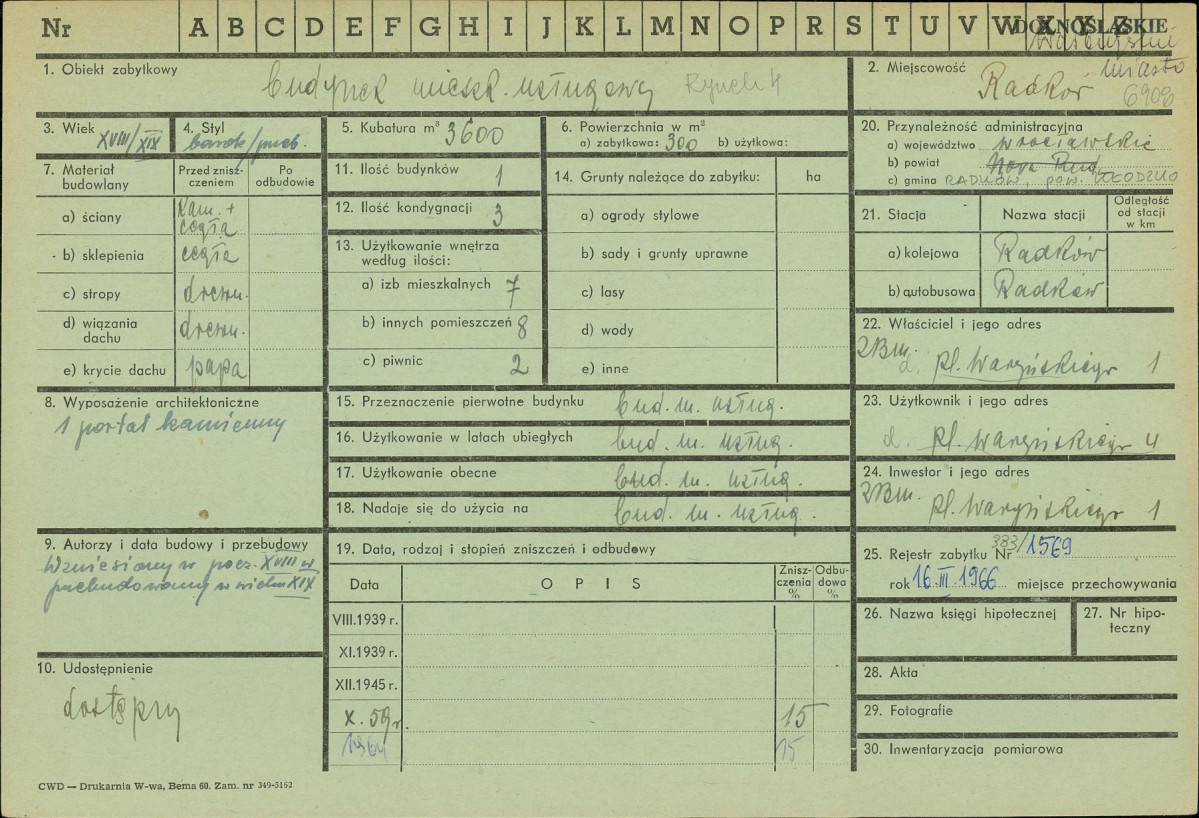 Nr A B C D E F G H I J K L M N O P R S T U V W X Y Z
DOLNOŚLĄSKIE
miasto
1. Obiekt zabytkowy
budynek mieszk. usługowy Rynek 4
2. Miejscowość
Radków 6908
3. Wiek
XVIII/XIX
4. Styl
barok/przeb.
5. Kubatura m³ 3600
6. Powierzchnia w m²
a) zabytkowa: 300 b) użytkowa:
20. Przynależność administracyjna
a) województwo wrocławskie
b) powiat Nowa Ruda
c) gmina RADKÓW, pow. KŁODZKO
7. Materiał budowlany
Przed znisz-
czeniem
Po
odbudowie
a) ściany kam. +
cegła
b) sklepienia cegła
c) stropy drewn.
d) wiązania
dachu drewn.
e) krycie dachu papa
11. Ilość budynków 1
12. Ilość kondygnacji 3
13. Użytkowanie wnętrza
według ilości:
a) izb mieszkalnych 7
b) innych pomieszczeń 8
c) piwnic 2
14. Grunty należące do zabytku: ha
a) ogrody stylowe
b) sady i grunty uprawne
c) lasy
d) wody
e) inne
21. Stacja Nazwa stacji
Odległość
od stacji
w km
a) kolejowa Radków
b) autobusowa Radków
22. Właściciel i jego adres
ZBM.
Pl. Waryńskiego 1
8. Wyposażenie architektoniczne
1 portal kamienny
15. Przeznaczenie pierwotne budynku bud. m. usług.
16. Użytkowanie w latach ubiegłych bud. m. usług.
17. Użytkowanie obecne bud. m. usług.
18. Nadaje się do użycia na bud. m. usług.
23. Użytkownik i jego adres
Pl. Waryńskiego 4
24. Inwestor i jego adres
ZBM.
Pl. Waryńskiego 1
9. Autorzy i data budowy i przebudowy
Wzniesiony w pocz. XVIII w
przebudowany w wieku XIX
10. Udostępnienie
dostępny
19. Data, rodzaj i stopień zniszczeń i odbudowy
Data OPIS
Znisz-
czenia
%
Odbu-
dowa
%
VIII.1939 r.
XI.1939 r.
XII.1945 r.
X. 59 r. 15
1964 15
25. Rejestr zabytku Nr 383/1569
rok 16 III 1966 miejsce przechowywania
26. Nazwa księgi hipotecznej
27. Nr hipo-
teczny
28. Akta
29. Fotografie
30. Inwentaryzacja pomiarowa
CWD — Drukarnia W-wa, Bema 60. Zam. nr 349-5162